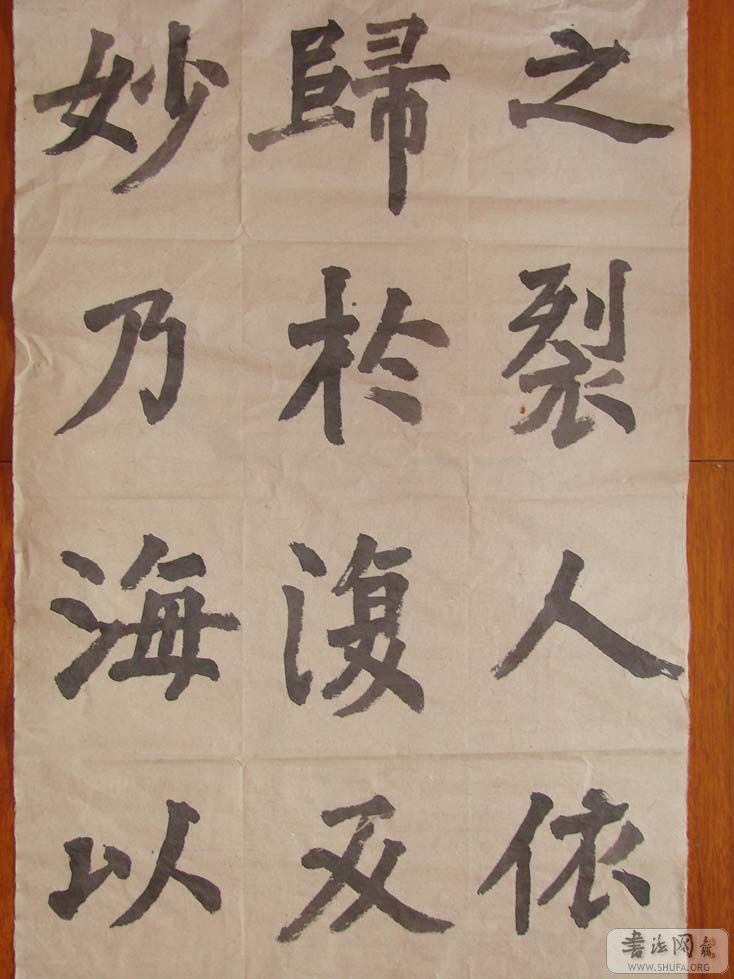 之裂人依
歸於復及
妙乃海以
書法网
WWW.SHUFA.ORG